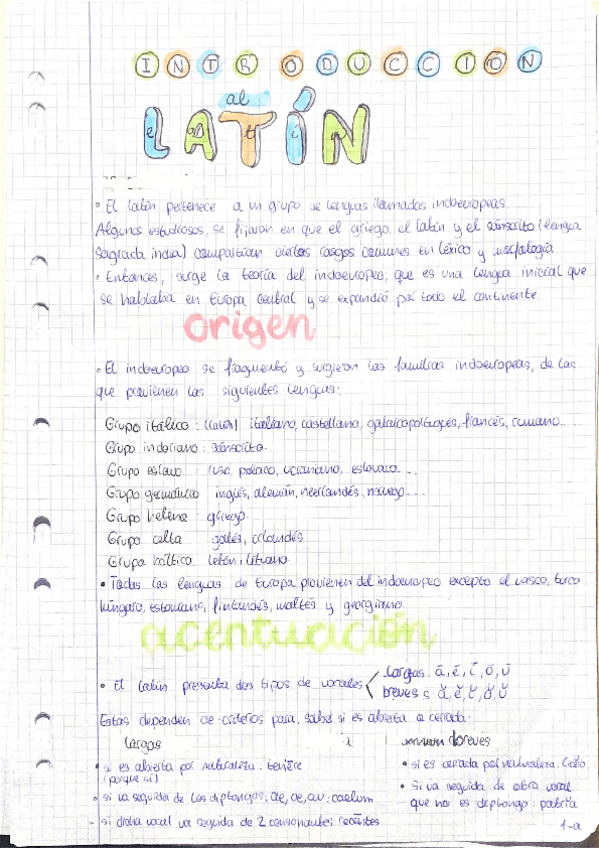 INTRODUCCION
al
LATÍN
• El latín pertenece a un grupo de lenguas llamadas indoeuropeas.
Algunos estudiosos, se fijaron en que el griego, el latín y el sánscrito (lengua
sagrada india) compartían ciertos rasgos comunes en léxico y morfología
• Entonces, surge la teoría del indoeuropeo, que es una lengua inicial que
se hablaba en Europa central y se expandió por todo el continente.
origen
• El indoeuropeo se fragmentó y surgieron las familias indoeuropeas, de las
que provienen las siguientes lenguas:
Grupo itálico: (latín) italiano, castellano, galaicoportugués, francés, rumano...
Grupo indoriano: sánscrito.
Grupo eslavo: ruso, polaco, ucraniano, eslovaco...
Grupo germánico inglés, alemán, neerlandés, noruego...
Grupo heleno: griego.
Grupo celta galés, irlandés.
Grupo báltico letón, lituano
• Todas las lenguas de Europa provienen del indoeuropeo excepto el vasco, turco
húngaro, estoniano, finlandés, maltés y georgiano.
acentuación
• El latín presenta dos tipos de vocales
largas: ā, ē, ī, ō, ū
breves: ă, ĕ, ĭ, ŏ, ŭ
Estas dependen de criterios para, saber si es abierta o cerrada.
largas
breves
• si es abierta por naturaleza:
(porque sí)
• si es cerrada por naturaleza:
• si va seguida de los diptongos: ae, oe, au: caelum
• si va seguida de otra vocal
que no es diptongo:
- si dicha vocal va seguida de 2 consonantes:
1-a